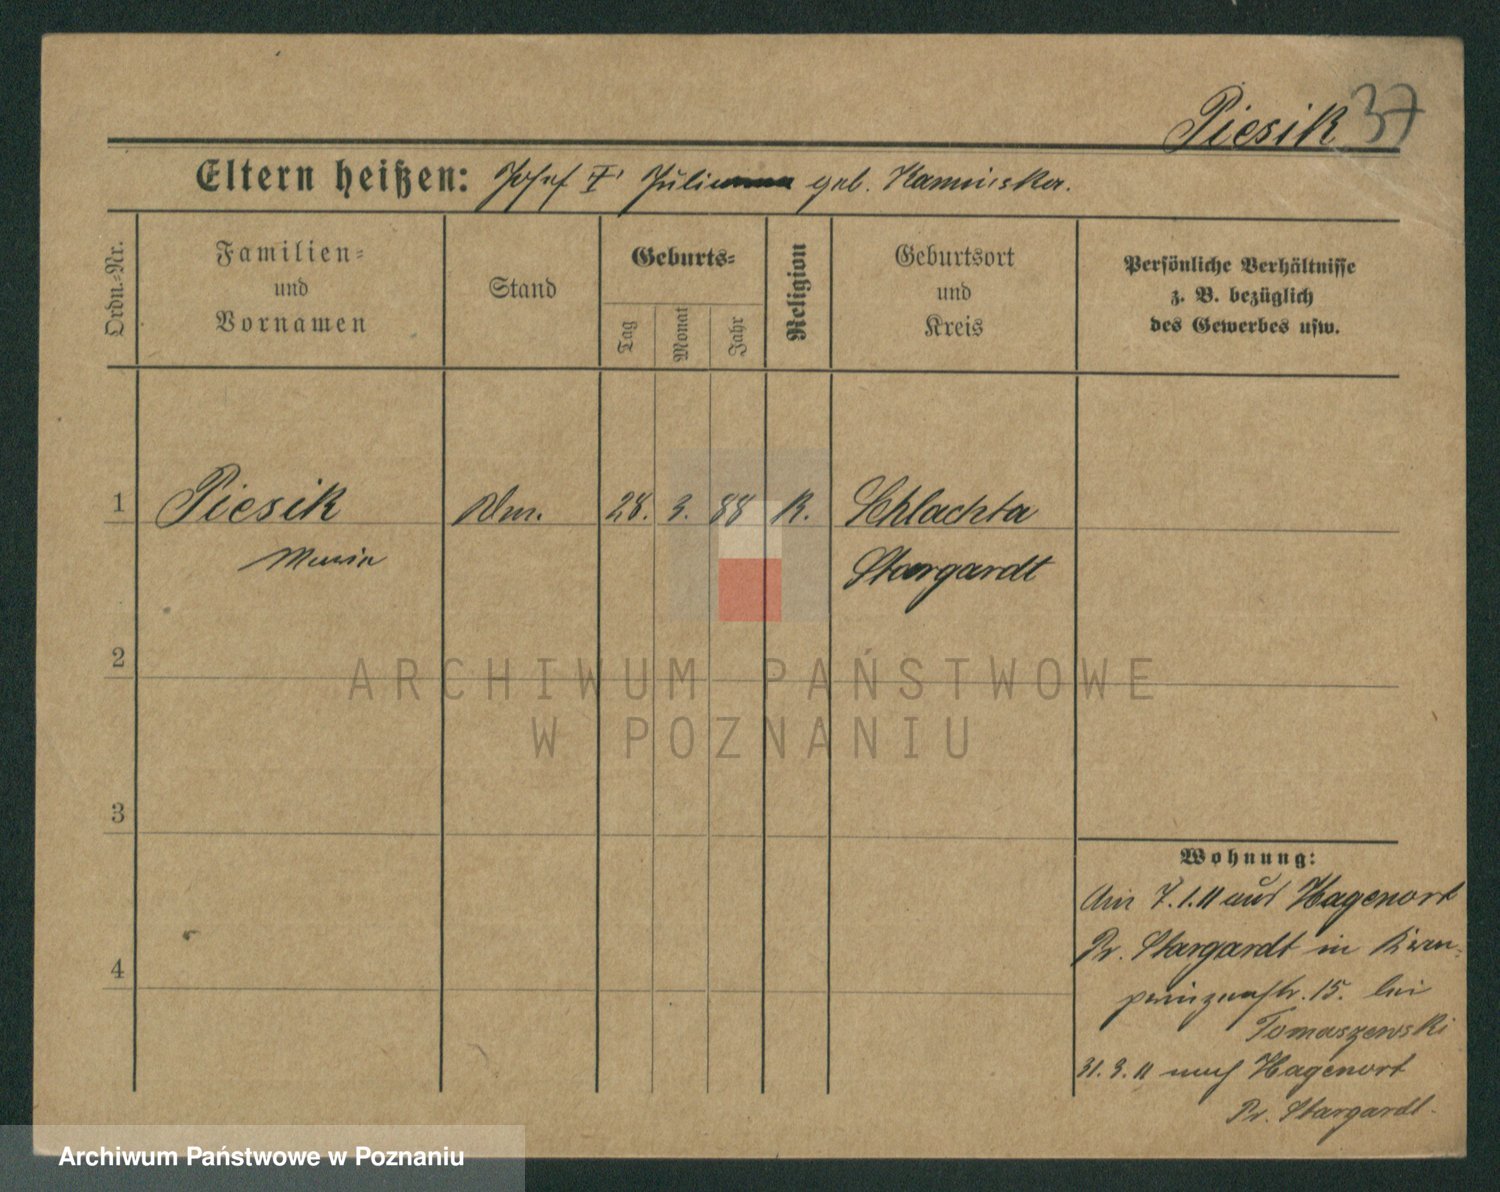 Piesik 37
Eltern heißen: Josef † Juli geb. Kaminska.
Ordn.-Nr.
Familien-
und
Vornamen
Stand
Geburts-
Tag
Monat
Jahr
Religion
Geburtsort
und
Kreis
Persönliche Verhältnisse
z. B. bezüglich
des Gewerbes usw.
1 Piesik 28. 3. 88 K. Schlachta
Maria Stargardt
2
3
4
ARCHIWUM PAŃSTWOWE
W POZNANIU
Wohnung:
Am 7.1.11 aus Hagenort
Pr. Stargardt in Kron-
prinzenstr. 15. bei
Tomaszewski
31.3.11 nach Hagenort
Pr. Stargardt.
Archiwum Państwowe w Poznaniu